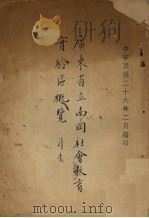 中華民國二十六年二月編印
廣東省立南園社會教育
實驗區概覽